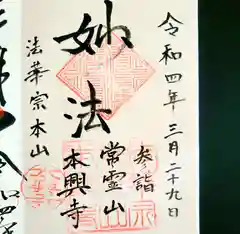 令和四年三月二十九日
参詣
妙法
常霊山
本興寺
法華宗本山